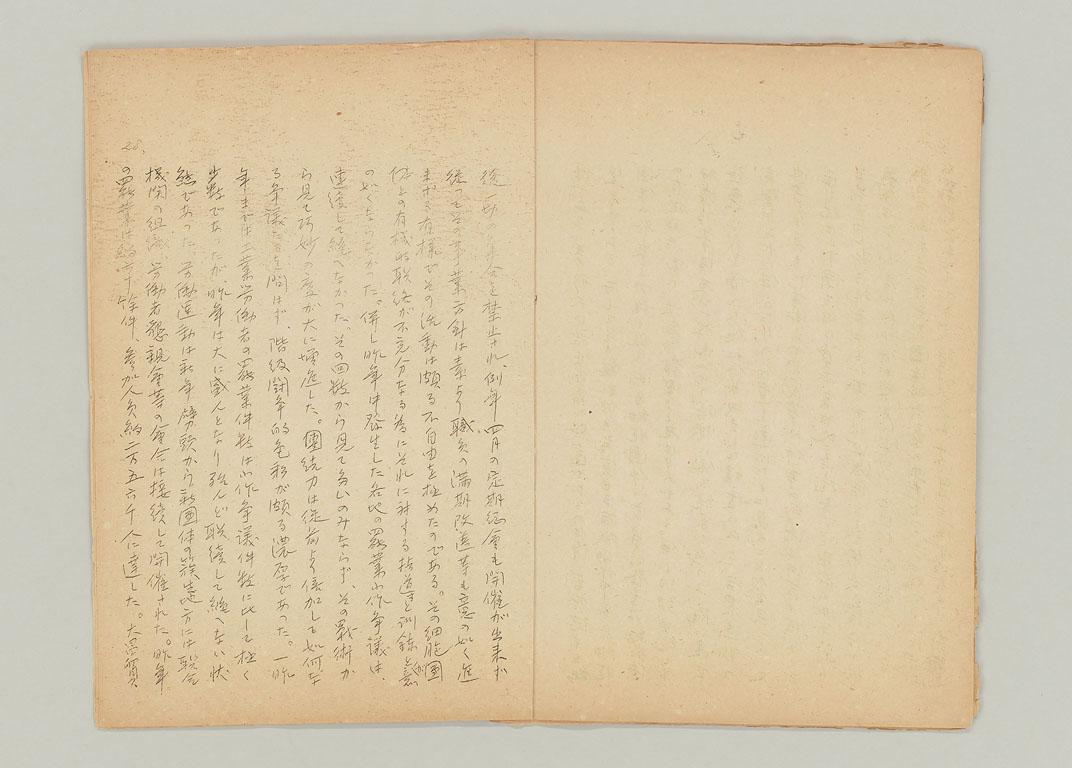 後一切の集会を禁止され、例年四月の定期総會も開催が出来ず
従つてその事業方針は素より職員の満期改選等も意の如く進
まざる有様でその活動は頗る不自由を極めたのである。その細胞團
体との有機的联絡が不充分なる為にそれに対する指導と訓錬も意
の如くならなかつた。併し昨年中発生した各地の罷業小作争議は、
連続して絶へなかつた。その回数から見て多いのみならず、その戰術か
ら見て巧妙の度が大に増進した。團結力は従前より倍加して如何な
る争議たるを問はず、階級闘争的色彩が頗る濃厚であつた。一昨
年までは工業労働者の罷業件数は小作争議件数に比して極く
少数であつたが、昨年は大に盛んとなり殆んど联続して絶へない状
態であつた。労働運動は新年劈頭から新團体の簇生地方には联合
機関の組織労働者懇親會等の會合は接続して開催された。昨年
の罷業は約 十餘件、參加人員約二万五六千人に達した。大
28.